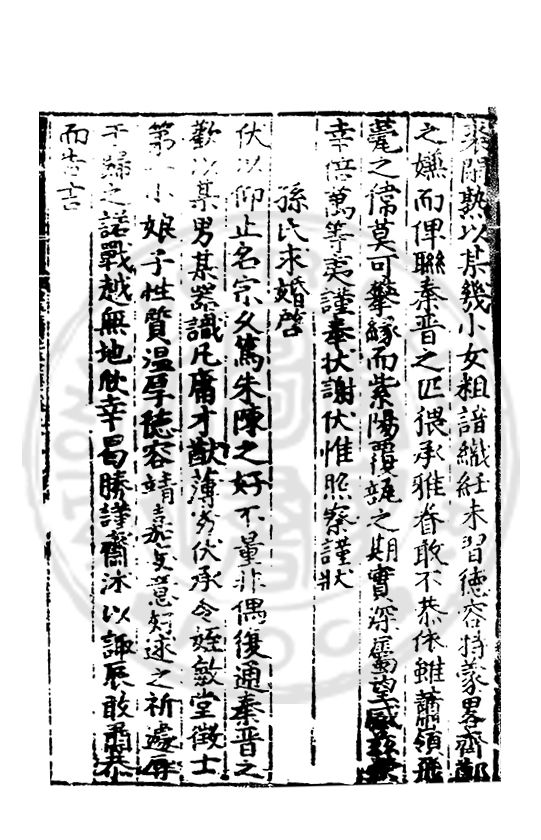 來閑熟以某幾小女粗諳織紝未習德容特蒙畧齊鄭
之嫌而俾聯秦晉之匹猥承雅眷敢不恭依雖蕭領飛
甍之儔莫可攀緣而紫陽覆之期實深屬望感
幸倍萬等夷謹奉狀謝伏惟照察謹狀
孫氏求婚啓
伏以仰止名宗久篤朱陳之好不量非偶復通秦晉之
歡以某男某器識凡庸才猷薄劣伏承令姪敏堂徵士
第一小娘子性質溫厚德容靖嘉爰意好逑之祈遽辱
于歸之諾戰越無地欣幸曷勝謹齋沐以諏辰敢肅恭
而告吉